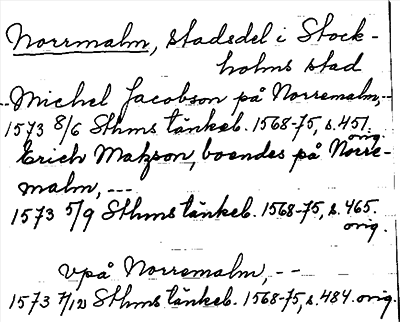 Norrmalm, stadsdel i Stock-
holms stad
--Michel Jacobson på Norremalm,--
1573 8/6 Sthms tänkeb. 1568-75, s. 451.
orig.
Erich Matzson, boendes på Norre-
malm, ---
1573 5/9 Sthms tänkeb. 1568-75, s. 465.
orig.
vpå Norremalm, --
1573 7/12 Sthms tänkeb. 1568-75, s. 484. orig.